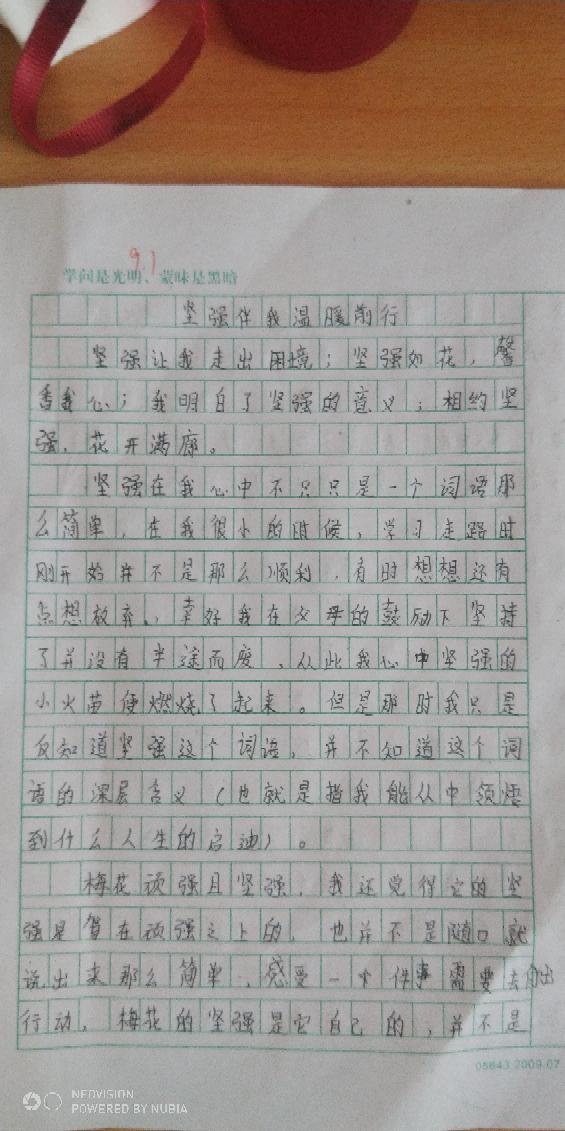 9.1
学问是光明、蒙昧是黑暗
坚强伴我温暖前行
坚强让我走出困境；坚强如花，馨
香我心；我明白了坚强的意义；相约坚
强，花开满廊。
坚强在我心中不只只是一个词语那
么简单，在我很小的时候，学习走路时
刚开始并不是那么顺利，有时想想还有
点想放弃，幸好我在父母的鼓励下坚持
了并没有半途而废，从此我心中坚强的
小火苗便燃烧了起来。但是那时我只是
仅知道坚强这个词语，并不知道这个词
语的深层含义（也就是指我能从中领悟
到什么人生的启迪）。
梅花顽强且坚强，我还觉得它的坚
强是 在顽强之上的，也并不是随口就
说出来那么简单，感受一个件事需要去付出
行动，梅花的坚强是它自己的，并不是
05643 2009.07
NEOVISION
POWERED BY NUBIA